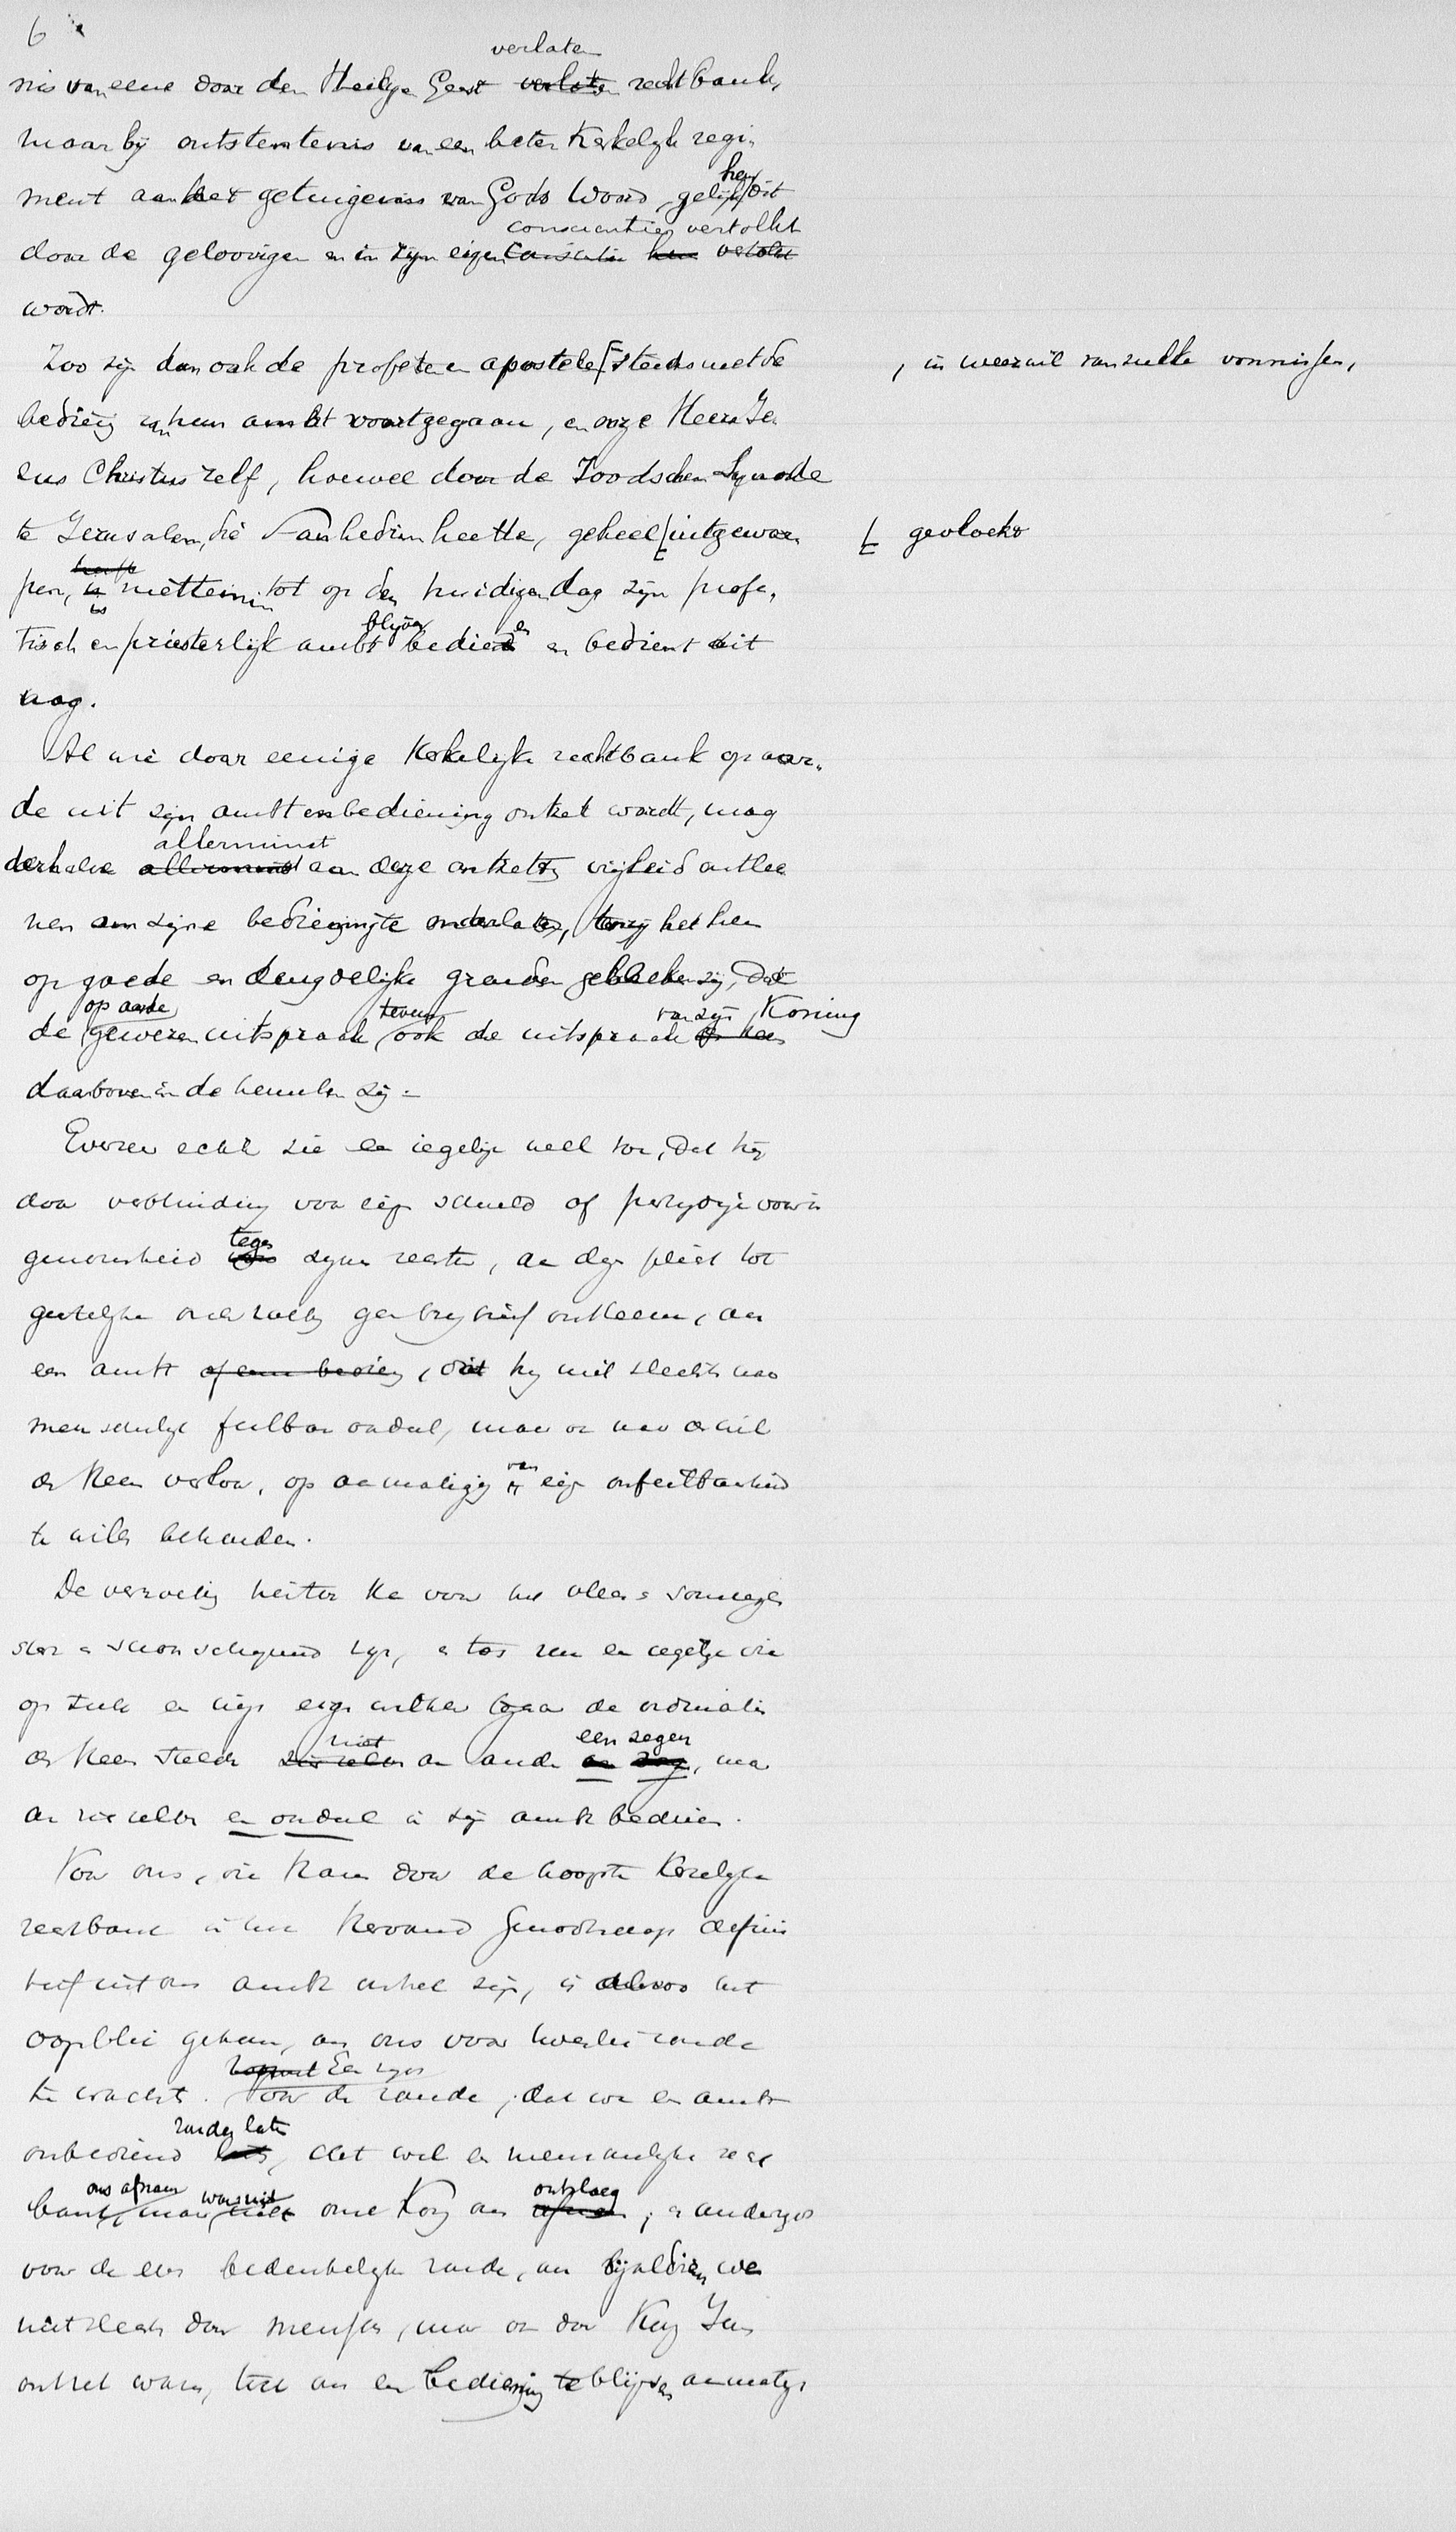 6
verlaten
nis van eene door den Heilige Geest verlaten rechtbank,
maar bij ontstentenis van een beter Kerkelijk regi-
ment aan het getuigenis van Gods Woord, gelijk hem dit
conscientie vertolkt
door de geloovigen en in zijn eigen conscientie hem vertolkt
wordt.
Zoo zijn dan ook de profeten en apostelen steeds met de
, in weerwil van zulke vonnissen,
bediening van hun ambt voortgegaan, en onze Heere Je-
zus Christus zelf, hoewel door de Joodschen Synode
te Jeruzalem, die Sanhedrin heette, geheel uitgewor-
gevloekt
pen, is niettemin tot op den huidigen dag zijn profe-
blijven
tisch en priesterlijk ambt bedienen en bedient dit
nog.
Al wie door eenige Kerkelijke rechtbank op aar-
de uit zijn ambt en bediening ontzet wordt, mag
allerminst
derhalve allerminst aan deze ontzetting vrijheid ontlee
nen om zijne bediening te onderlaten, tenzij het hem
op goede en deugdelijke gronden gebleken zij, dat
op aarde tevens van zijn Koning
de gewezen uitspraak ook de uitspraak
daarboven in de hemelen zij.
Evenzeer echter zie een iegelijk wel toe, dat hij
door verblinding voor eigen schuld of partijdige voorin
tegen
genomenheid zijne rechters, aan deze plicht tot
geestelijk onderzoek geen vrijbrief ontleene, om
een ambt of eene bediening, dat hij niet slechts naar
menschelijk feilbaar oordeel, maar ook naar de wil
des Heeren verloor, op aanmatiging van eigen onfeilbaarheid
te willen behouden.
De verzoeking hiertoe kan voor het vleesch sommiger
sterk en schoonschijnend zijn, en toch zou een iegelijk die
op zulk een wijs eigen wil tegen de ordinantie
niet een zegen
des Heeren stelde zich zelven en anderen een zegen, maar
aan zich zelven een oordeel in zijn ambt bedienen.
Voor ons, die thans door de hoogste Kerkelijke
rechtbank in het Hervormd Genootschap definitief
uit ons ambt ontzet zijn, is alzoo het
oogenblik gekomen, om ons voor tweeërlei zonde
Eenerzijds
te wachten. voor de zonde, dat we een ambt
zouden laten
onbediend laten, dat wel een menschelijke recht
ons afnam waaruit ontsloeg
bank, maar niet onze Koning ons afnam; en anderzijds
voor de even bedenkelijke zonde, om bijaldien we
niet slechts door menschen, maar ook door Koning Jezus
ontzet waren, toch ons een bediening te blijven aanmatigen